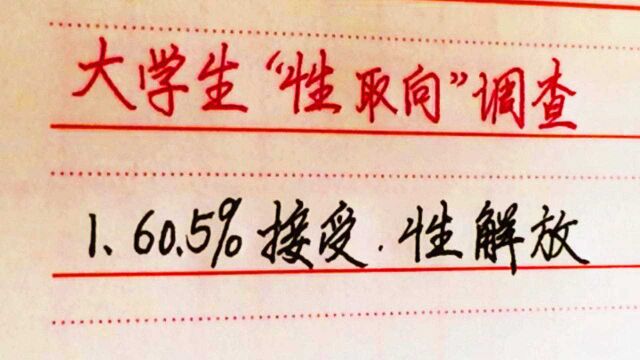 大学生“性取向”调查
1、60.5%接受.性解放